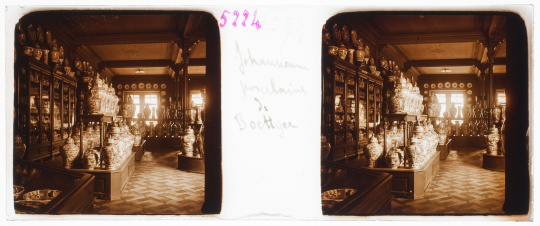 5224
Johanneum
porcelaine
de
Boettger